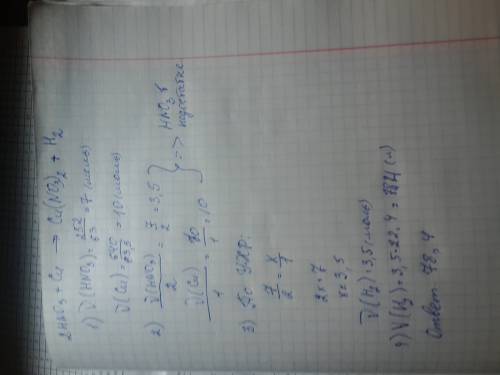 2HNO₃ + Cu → Cu(NO₃)₂ + H₂
1) ν(HNO₃) = 252/63 = 7 (моль)
ν(Cu) = 640/63,5 = 10 (моль)
2) ν(HNO₃)/2 = 7/2 = 3,5
ν(Cu)/1 = 10/1 = 10
} => HNO₃ в недостатке
3) По УХР:
7/2 = x/1
2x = 7
x = 3,5
ν(H₂) = 3,5 (моль)
4) V(H₂) = 3,5 · 22,4 = 78,4 (л)
Ответ 78,4